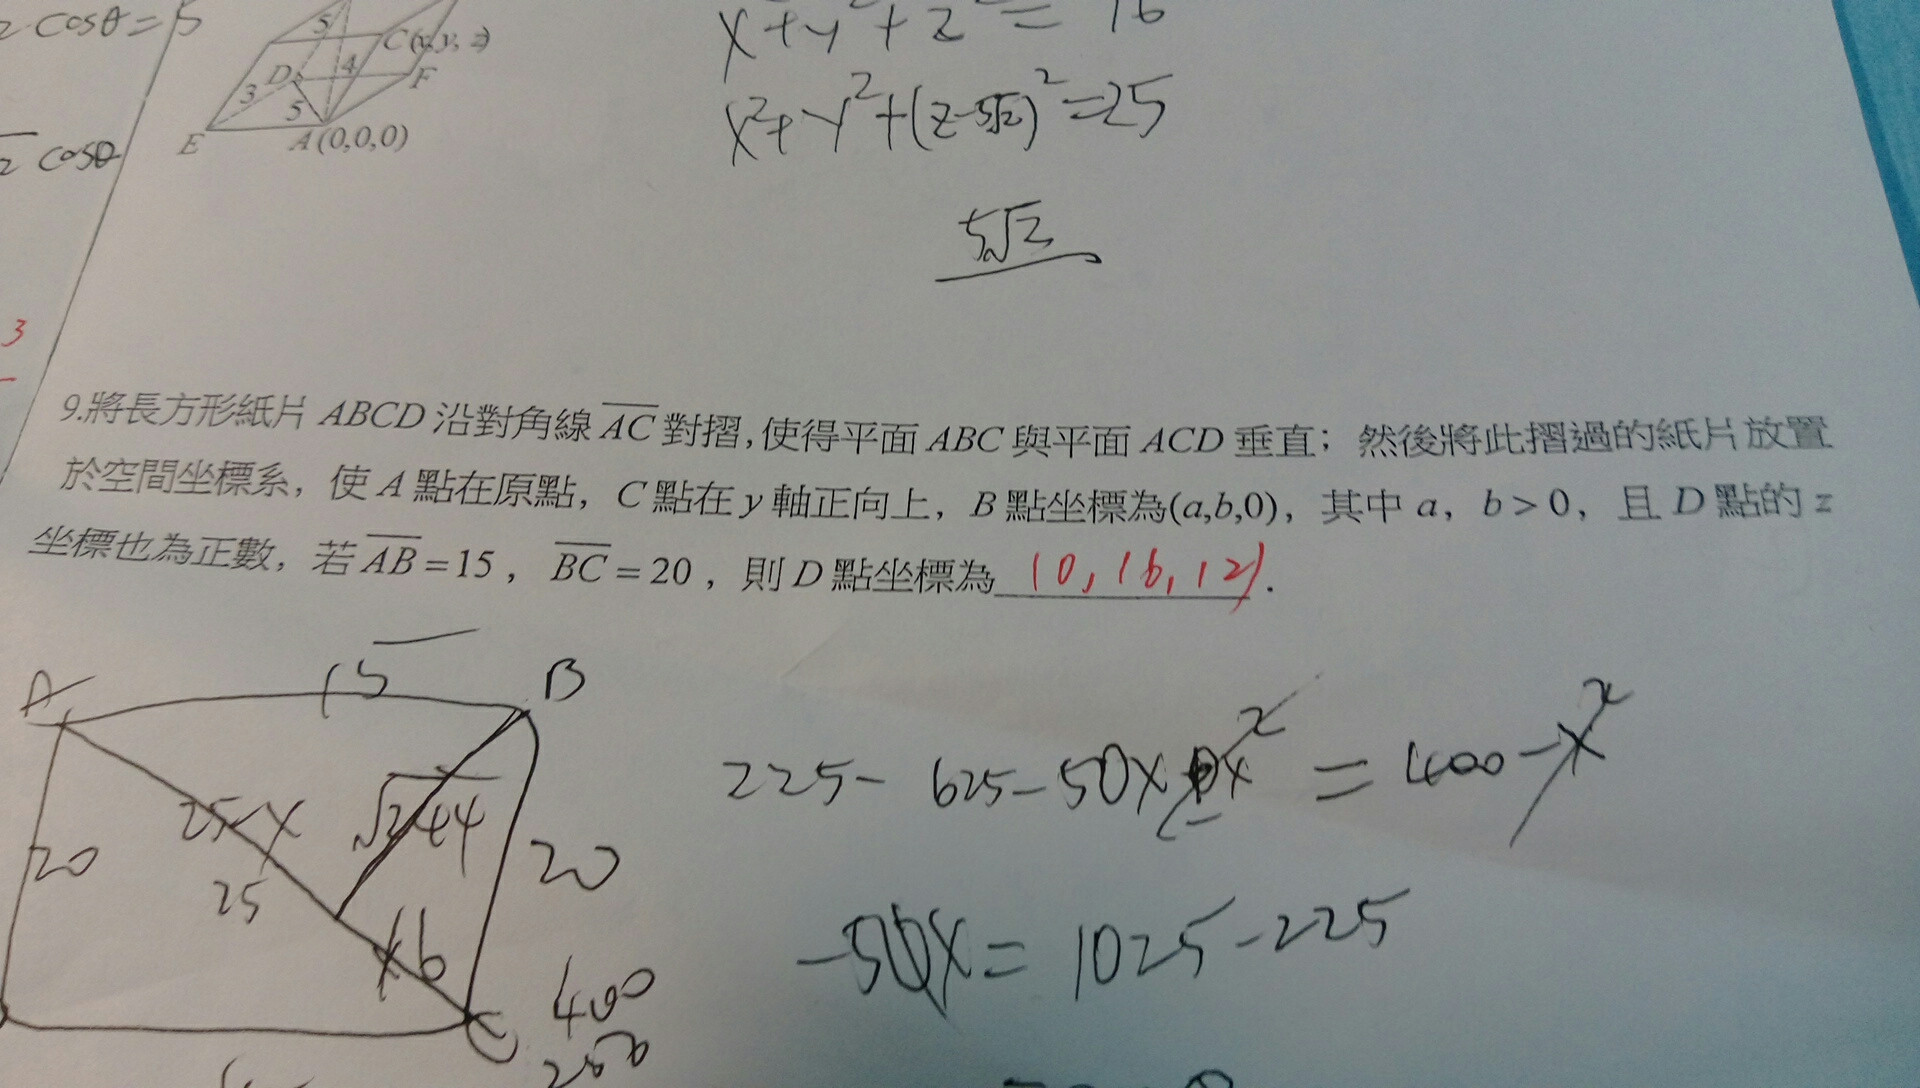 2 cosθ = 5
5
C(x, y, z)
D
4
F
3
5
E
A(0,0,0)
2 cosθ
x²+y²+z²= 16
x²+y²+(z-5√2)²=25
5√2
3
9.將長方形紙片 ABCD 沿對角線 AC 對摺,使得平面 ABC 與平面 ACD 垂直；然後將此摺過的紙片放置
於空間坐標系，使 A 點在原點，C 點在 y 軸正向上，B 點坐標為(a,b,0)，其中 a，b > 0，且 D 點的 z
坐標也為正數，若 AB = 15，BC = 20，則 D 點坐標為 (0, 16, 12).
A
15
B
25-x
√244
20
25
20
16
C
400
225- 625-50x x² = 400-x²
-50x = 1025-225